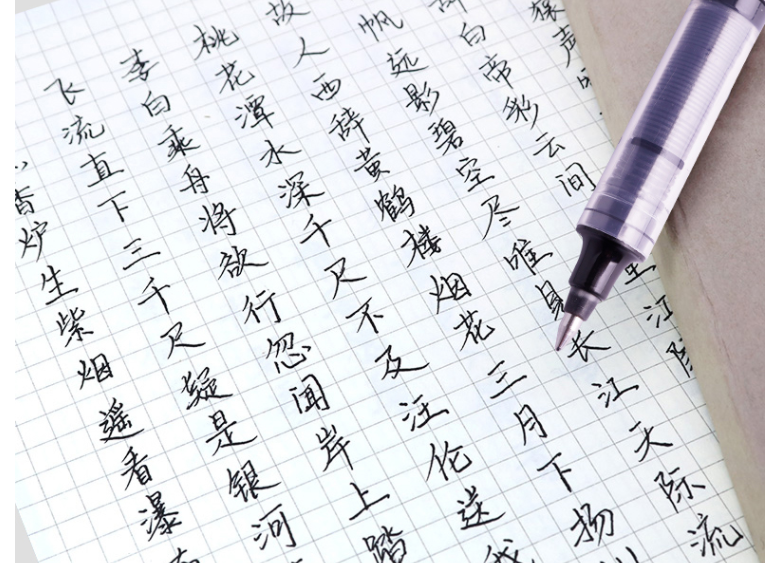 香炉生紫烟遥看瀑
飞流直下三千尺疑是银河
李白乘舟将欲行忽闻岸上踏
桃花潭水深千尺不及汪伦送我
故人西辞黄鹤楼烟花三月下扬
帆远影碧空尽唯见长江天际流
辞白帝彩云间里江陵
猿声